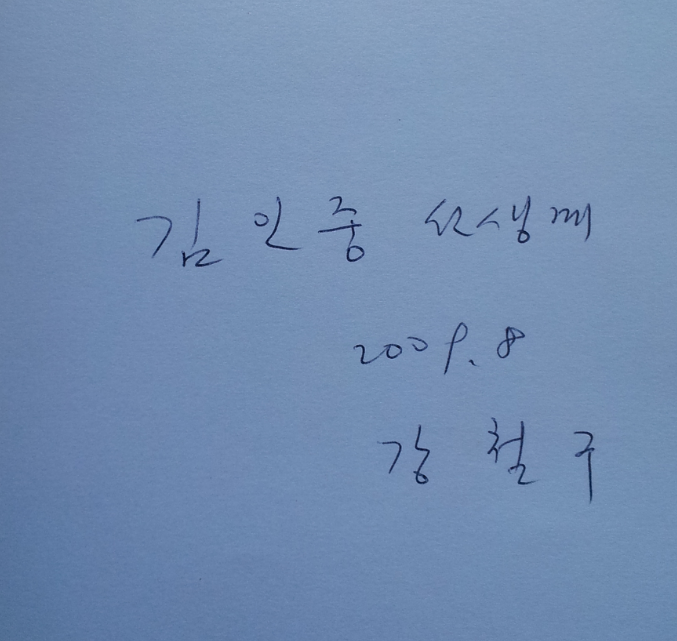 김인중 선생께
2009. 8
강철구